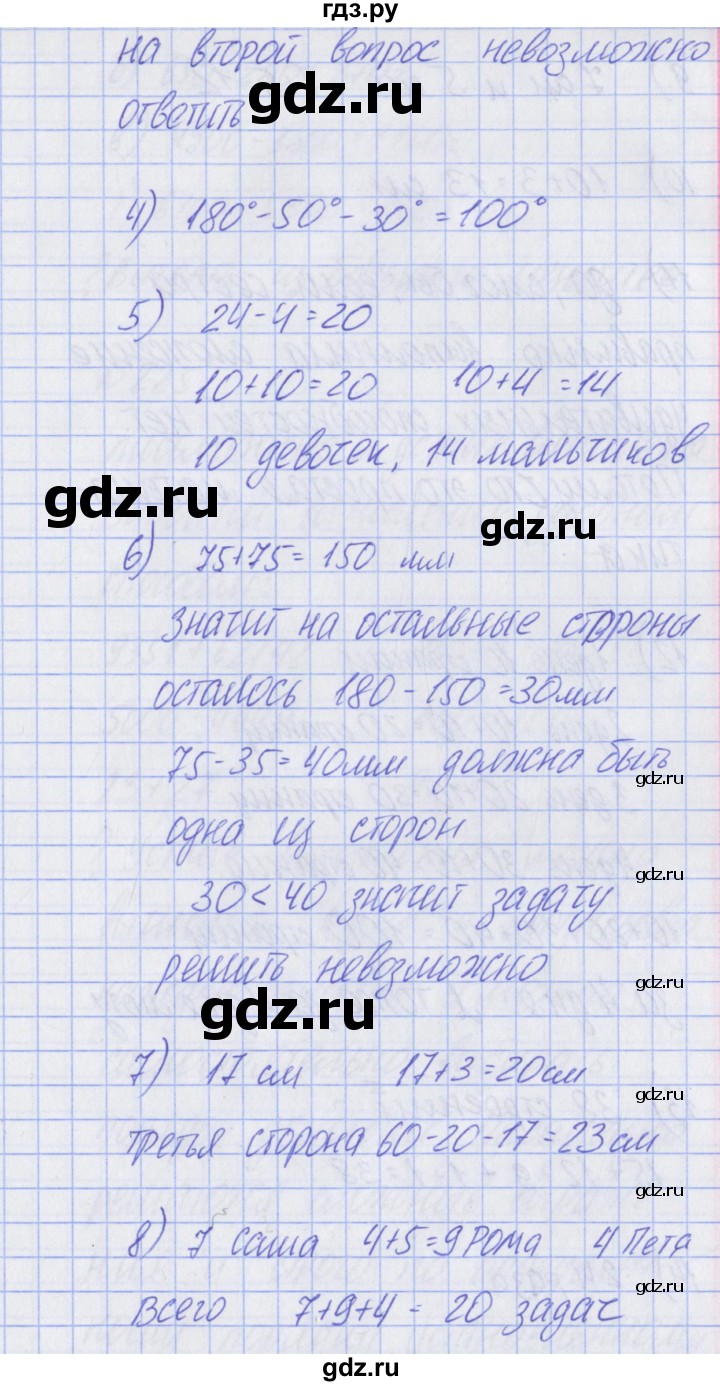 гдз.ру
на второй вопрос невозможно
ответить
gdz.ru
gdz.ru
4) 180°-50°-30°=100°
5) 24-4=20
10+10=20 10+4=14
10 девочек, 14 мальчиков
gdz.ru
gdz.ru
6) 75+75=150 мм
Значит на остальные стороны
осталось 180-150=30мм
75-35=40мм должна быть
gdz.ru
одна из сторон
gdz.ru
30<40 значит задачу
решить невозможно
gdz.ru
gdz.ru
7) 17 см 17+3=20см
gdz.ru
третья сторона 60-20-17=23см
gdz.ru
8) 7 Саша 4+5=9 Рома 4 Петя
gdz.ru
Всего 7+9+4=20 задач
gdz.ru